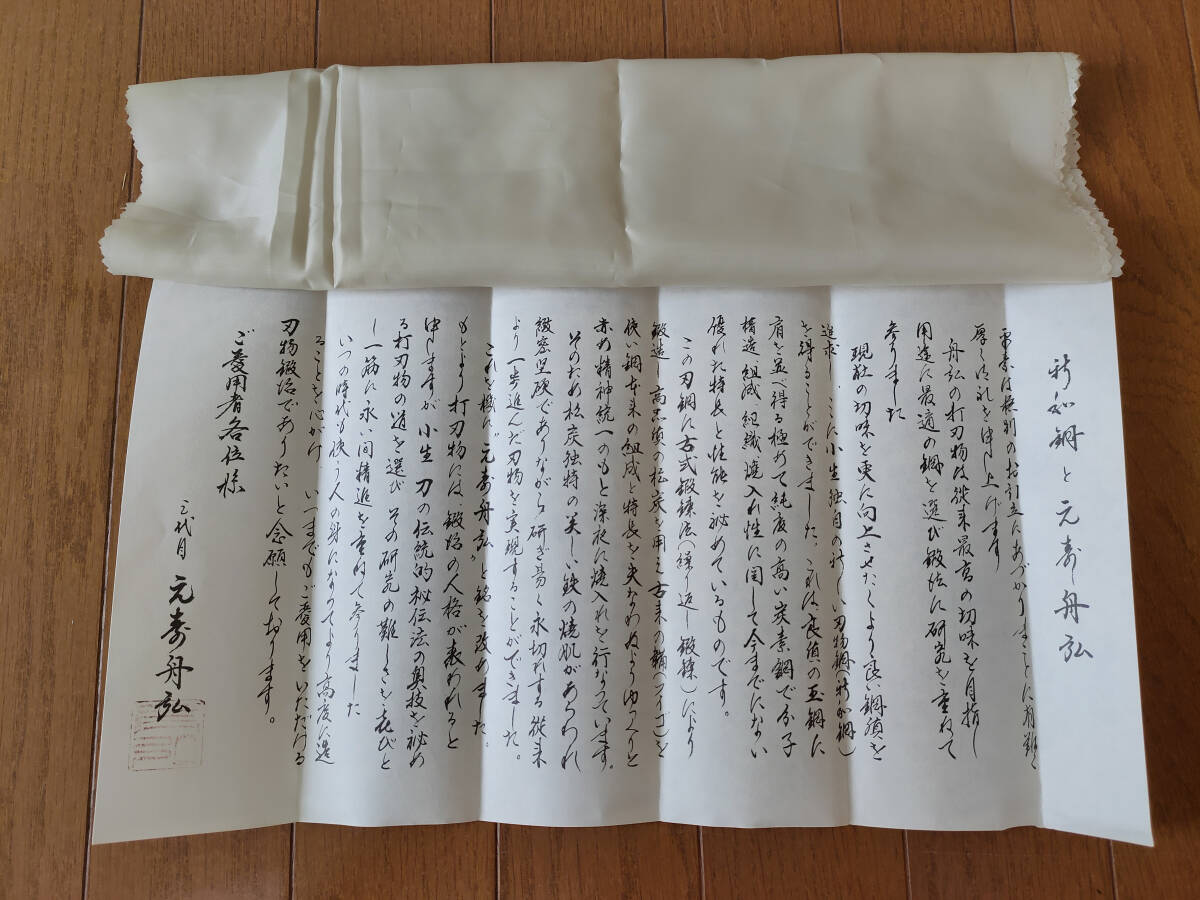 新如鋼と元寿舟弘
平素は格別のお引立にあづかりまことに有難く
厚く御礼を申し上げます
舟弘の打刃物は従来最高の切味を目指し
用途に最適の鋼を選び鍛法に研究を重ねて
参りました
現社の切味を更に向上させたくより良い鋼質を
追求し、ここに小生独自の新しい刃物鋼(新如鋼)
を得ることができました。これは良質の玉鋼に
肩を並べ得る極めて純度の高い炭素鋼で分子
構造 組成 組織 焼入れ性に関して今までにない
優れた特長と性能を秘めているものです。
この刃鋼に古式鍛錬法(繰り返し鍛錬)により
鍛造し 高品質の松炭を用え古来の鞴(フイゴ)を
使い鋼本来の組成と特長を失なわぬようゆっくりと
赤め精神統一のもと深夜に焼入れを行なっています。
そのため松炭独特の美しい鉄の焼肌があらわれ
緻密堅硬でありながら研ぎ易く永切れする従来
より一歩進んだ刃物を実現することができました。
これを機に"元寿舟弘"と銘を改めました。
もとより打刃物には鍛冶の人格が表われると
申しますが 小生 刀の伝統的秘伝法の奥技を秘め
る打刃物の道を選び その研究の難しさを喜びと
し一筋に永い間精進を重ねて参りました
いつの時代も使う人の身になってより高度に造
ることを心がけ いつまでもご愛用をいただける
刃物鍛冶でありたいと念願しております。
ご愛用者各位様
三代目 元寿舟弘